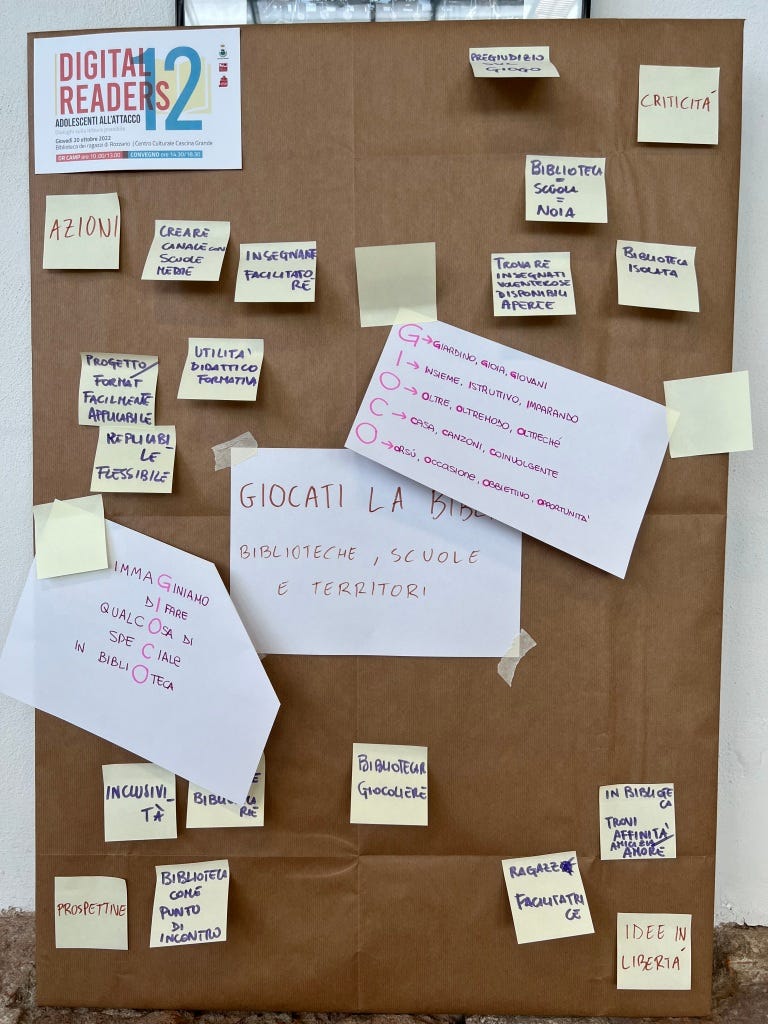 DIGITAL
READERS
12
ADOLESCENTI ALL'ATTACCO
Dialoghi sulla lettura possibile
Giovedì 20 ottobre 2022
Biblioteca dei ragazzi di Rozzano | Centro Culturale Cascina Grande
DR CAMP ore 10.00/13.00 CONVEGNO ore 14.30/18.30
PREGIUDIZIO
SUL
GIOCO
CRITICITÁ
BIBLIOTECA
=
SCUOLA
=
NOIA
AZIONI
CREARE
CANALE CON
SCUOLE
MEDIE
INSEGNANTE
FACILITATO
RE
TROVARE
INSEGNATI
VOLENTEROSE
DISPONIBILI
APERTE
BIBLIOTECA
ISOLATA
PROGETTO/
FORMAT
FACILMENTE
APPLICABILE
UTILITA'
DIDATTICO
FORMATIVA
REPLICABI
LE
FLESSIBILE
G → GIARDINO, GIOIA, GIOVANI
I → INSIEME, ISTRUTTIVO, IMPARANDO
O → OLTRE, OLTREMODO, OLTRECHÉ
C → CASA, CANZONI, COINVOLGENTE
O → ORSÚ, OCCASIONE, OBBIETTIVO, OPPORTUNITA'
GIOCATI LA BIBL
BIBLIOTECHE, SCUOLE
E TERRITORI
IMMAGINIAMO
DI FARE
QUALCOSA DI
SPECIALE
IN BIBLIOTECA
INCLUSIVI-
TÀ
RIE
BIBLIOTECAR
GIOCOLIERE
IN BIBLIOTE
CA
TROVI
AFFINITA'
AMICIZIA/
AMORE
PROSPETTIVE
BIBLIOTECA
COME
PUNTO
DI
INCONTRO
RAGAZZ
FACILITATRI
CE
IDEE IN
LIBERTÁ